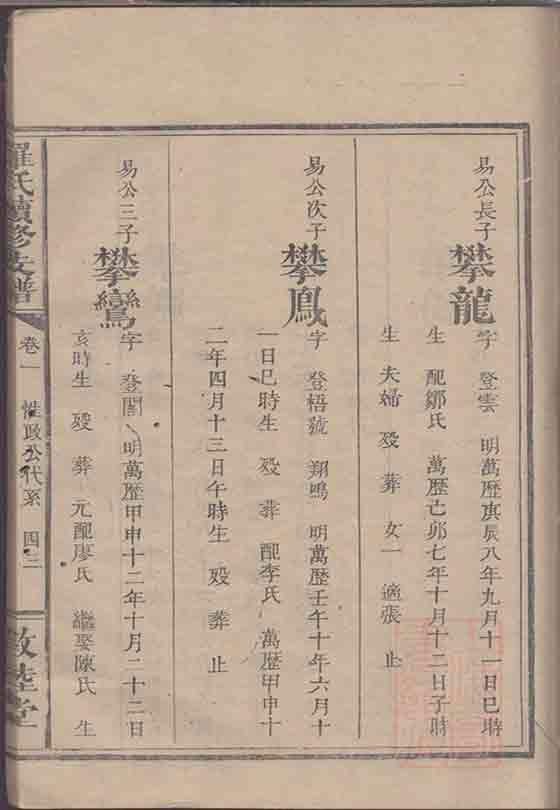 易公長子
攀龍
字 登雲 明萬歷庚辰八年九月十一日巳時
生 配鄒氏 萬歷己卯七年十月十二日子時
生 夫婦 歿 葬 女一 適張 止
易公次子
攀鳳
字 登梧號 翔鳴 明萬歷壬午十年六月十
一日巳時生 歿 葬 配李氏 萬歷甲申十
二年四月十三日午時生 歿 葬 止
易公三子
攀鸞
字 登閣 明萬歷甲申十二年十月二十二日
亥時生 歿 葬 元配廖氏 繼娶陳氏 生
羅氏續修支譜
卷一 惟政公代系 四三
敦睦堂